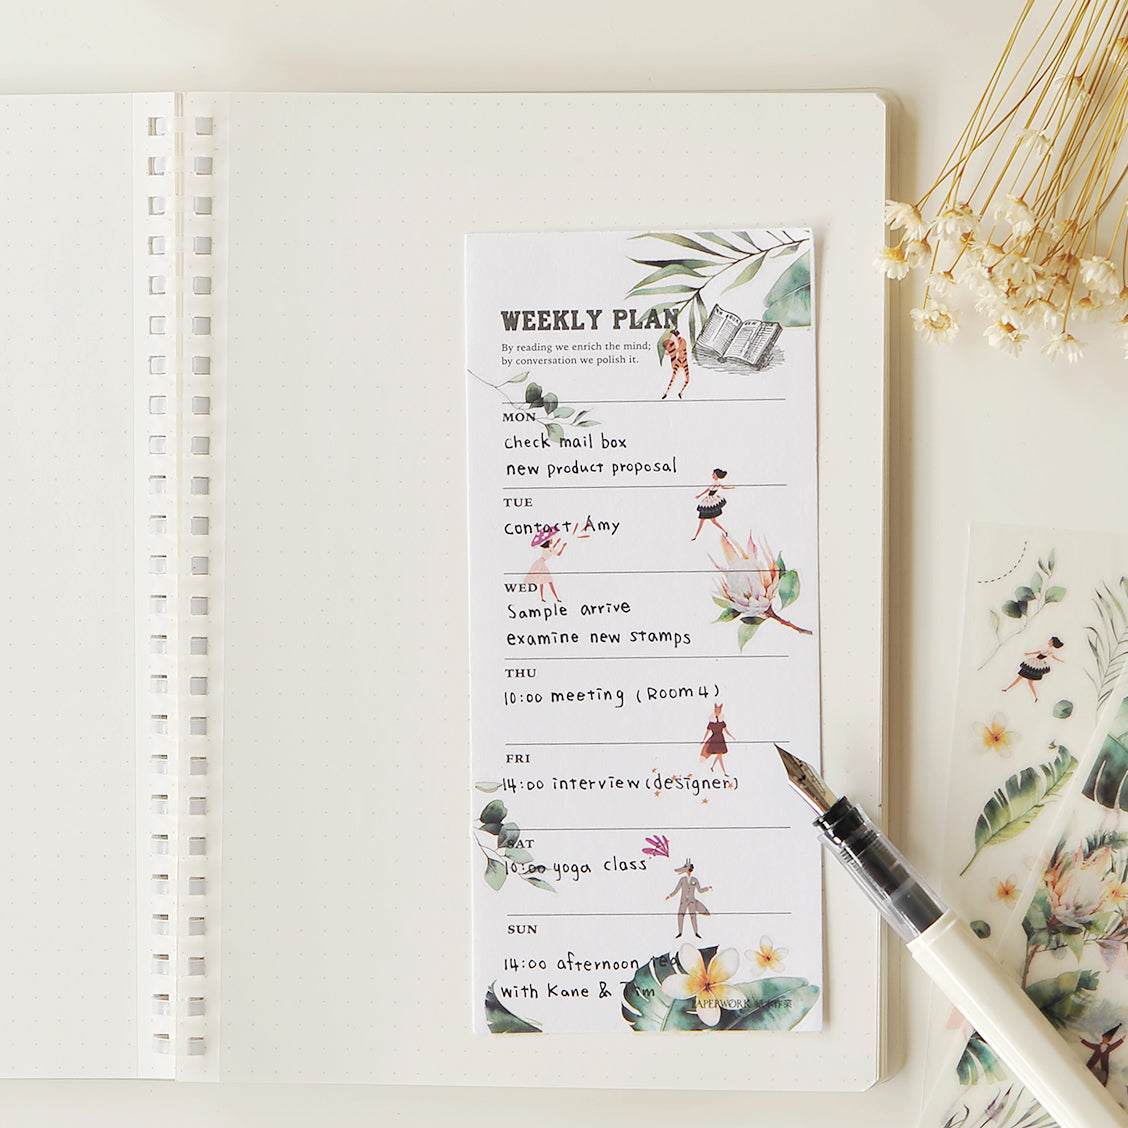 WEEKLY PLAN
By reading we enrich the mind;
by conversation we polish it.
MON
check mail box
new product proposal
TUE
contact Amy
WED
Sample arrive
examine new stamps
THU
10:00 meeting (Room 4)
FRI
14:00 interview (designer)
SAT
10:00 yoga class
SUN
14:00 afternoon tea
with Kane & Tim
PAPERWORK